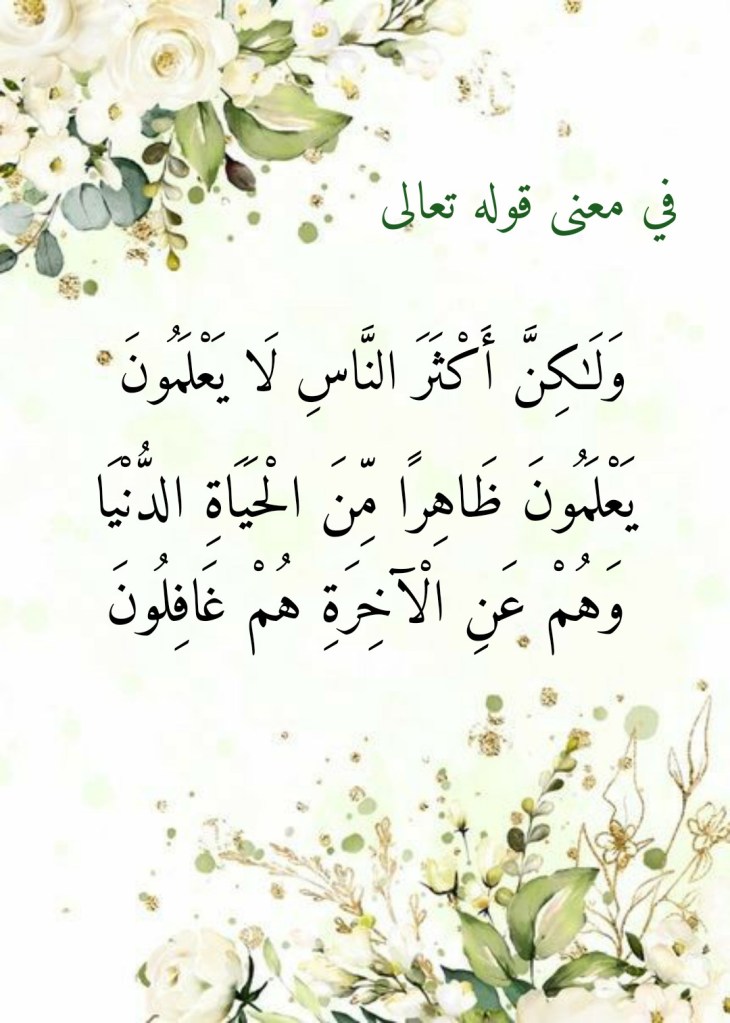 في معنى قوله تعالى
وَلَٰكِنَّ أَكْثَرَ النَّاسِ لَا يَعْلَمُونَ
يَعْلَمُونَ ظَاهِرًا مِّنَ الْحَيَاةِ الدُّنْيَا
وَهُمْ عَنِ الْآخِرَةِ هُمْ غَافِلُونَ